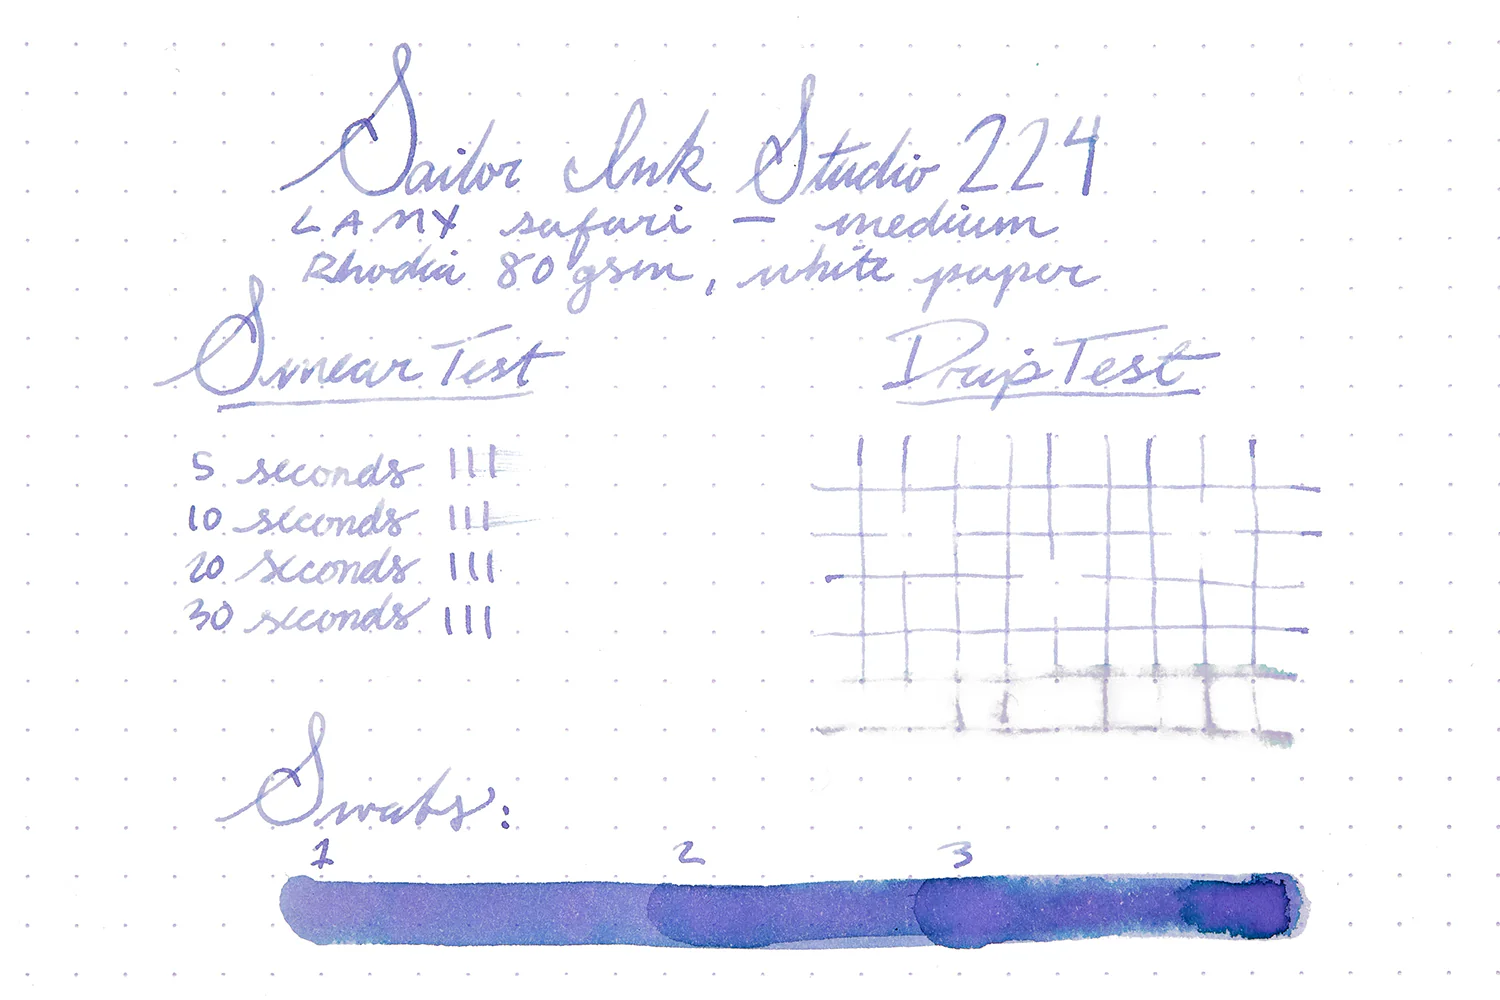 Sailor Ink Studio 224
LAMY safari – medium
Rhodia 80 gsm, white paper
Smear Test
Drip Test
5 seconds
10 seconds
20 seconds
30 seconds
Swabs:
1 2 3